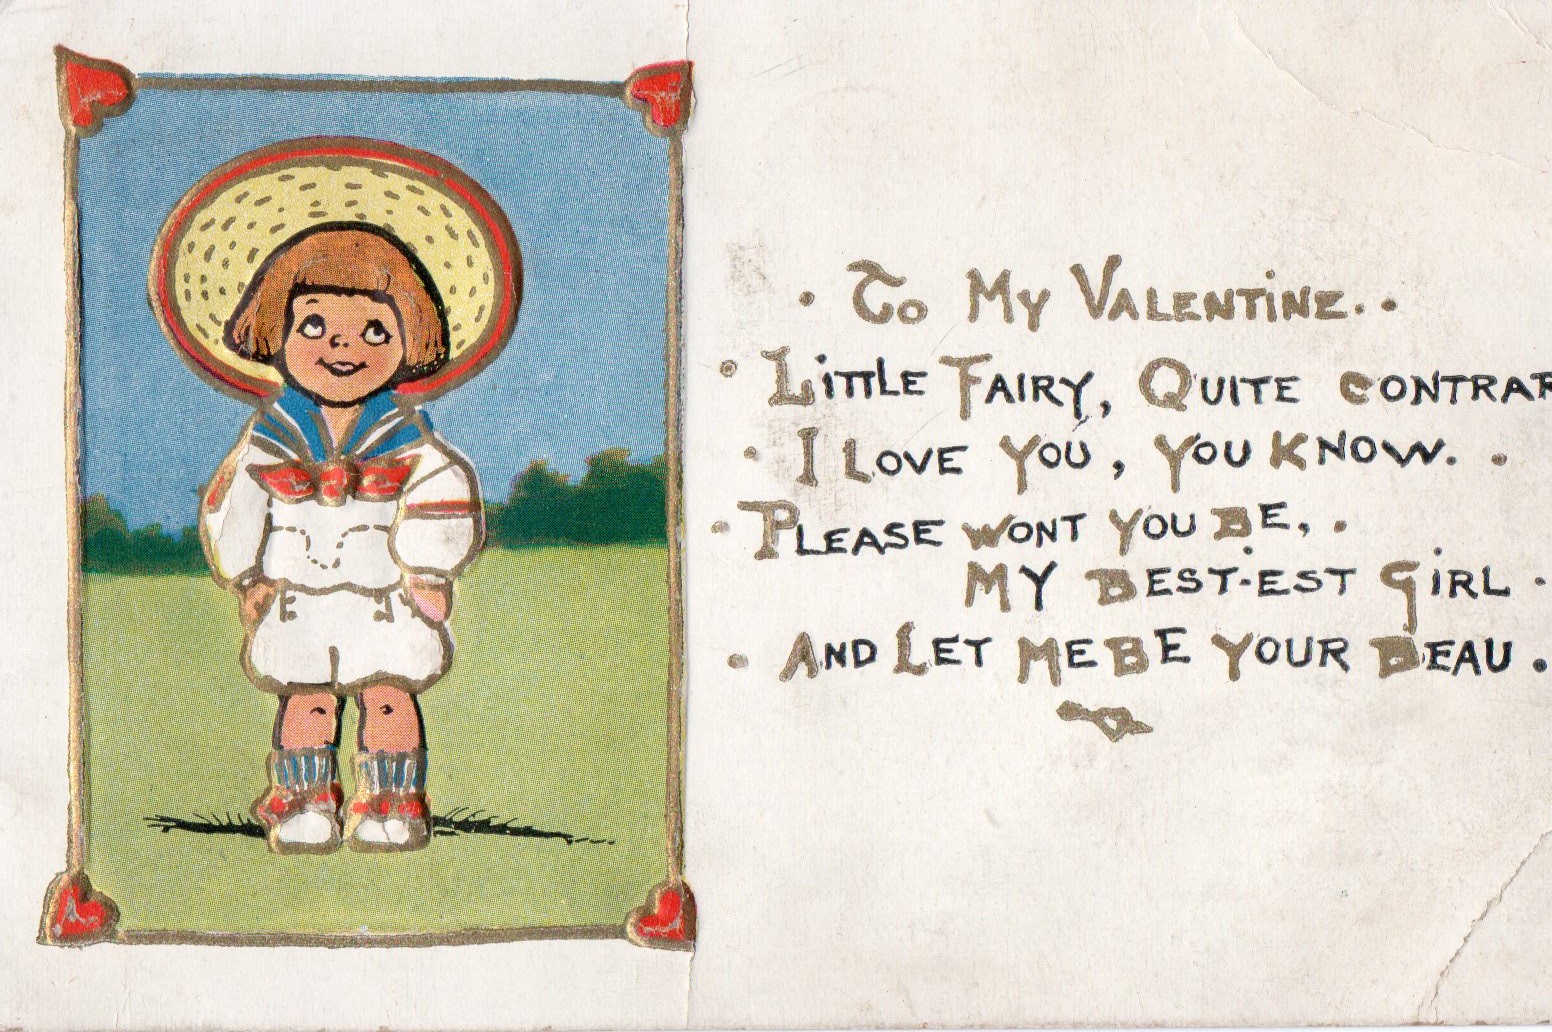 To My Valentine..
Little Fairy, Quite contrar
I Love You, You Know.
Please wont You Be,
My Best-est Girl
And Let Me Be Your Beau.